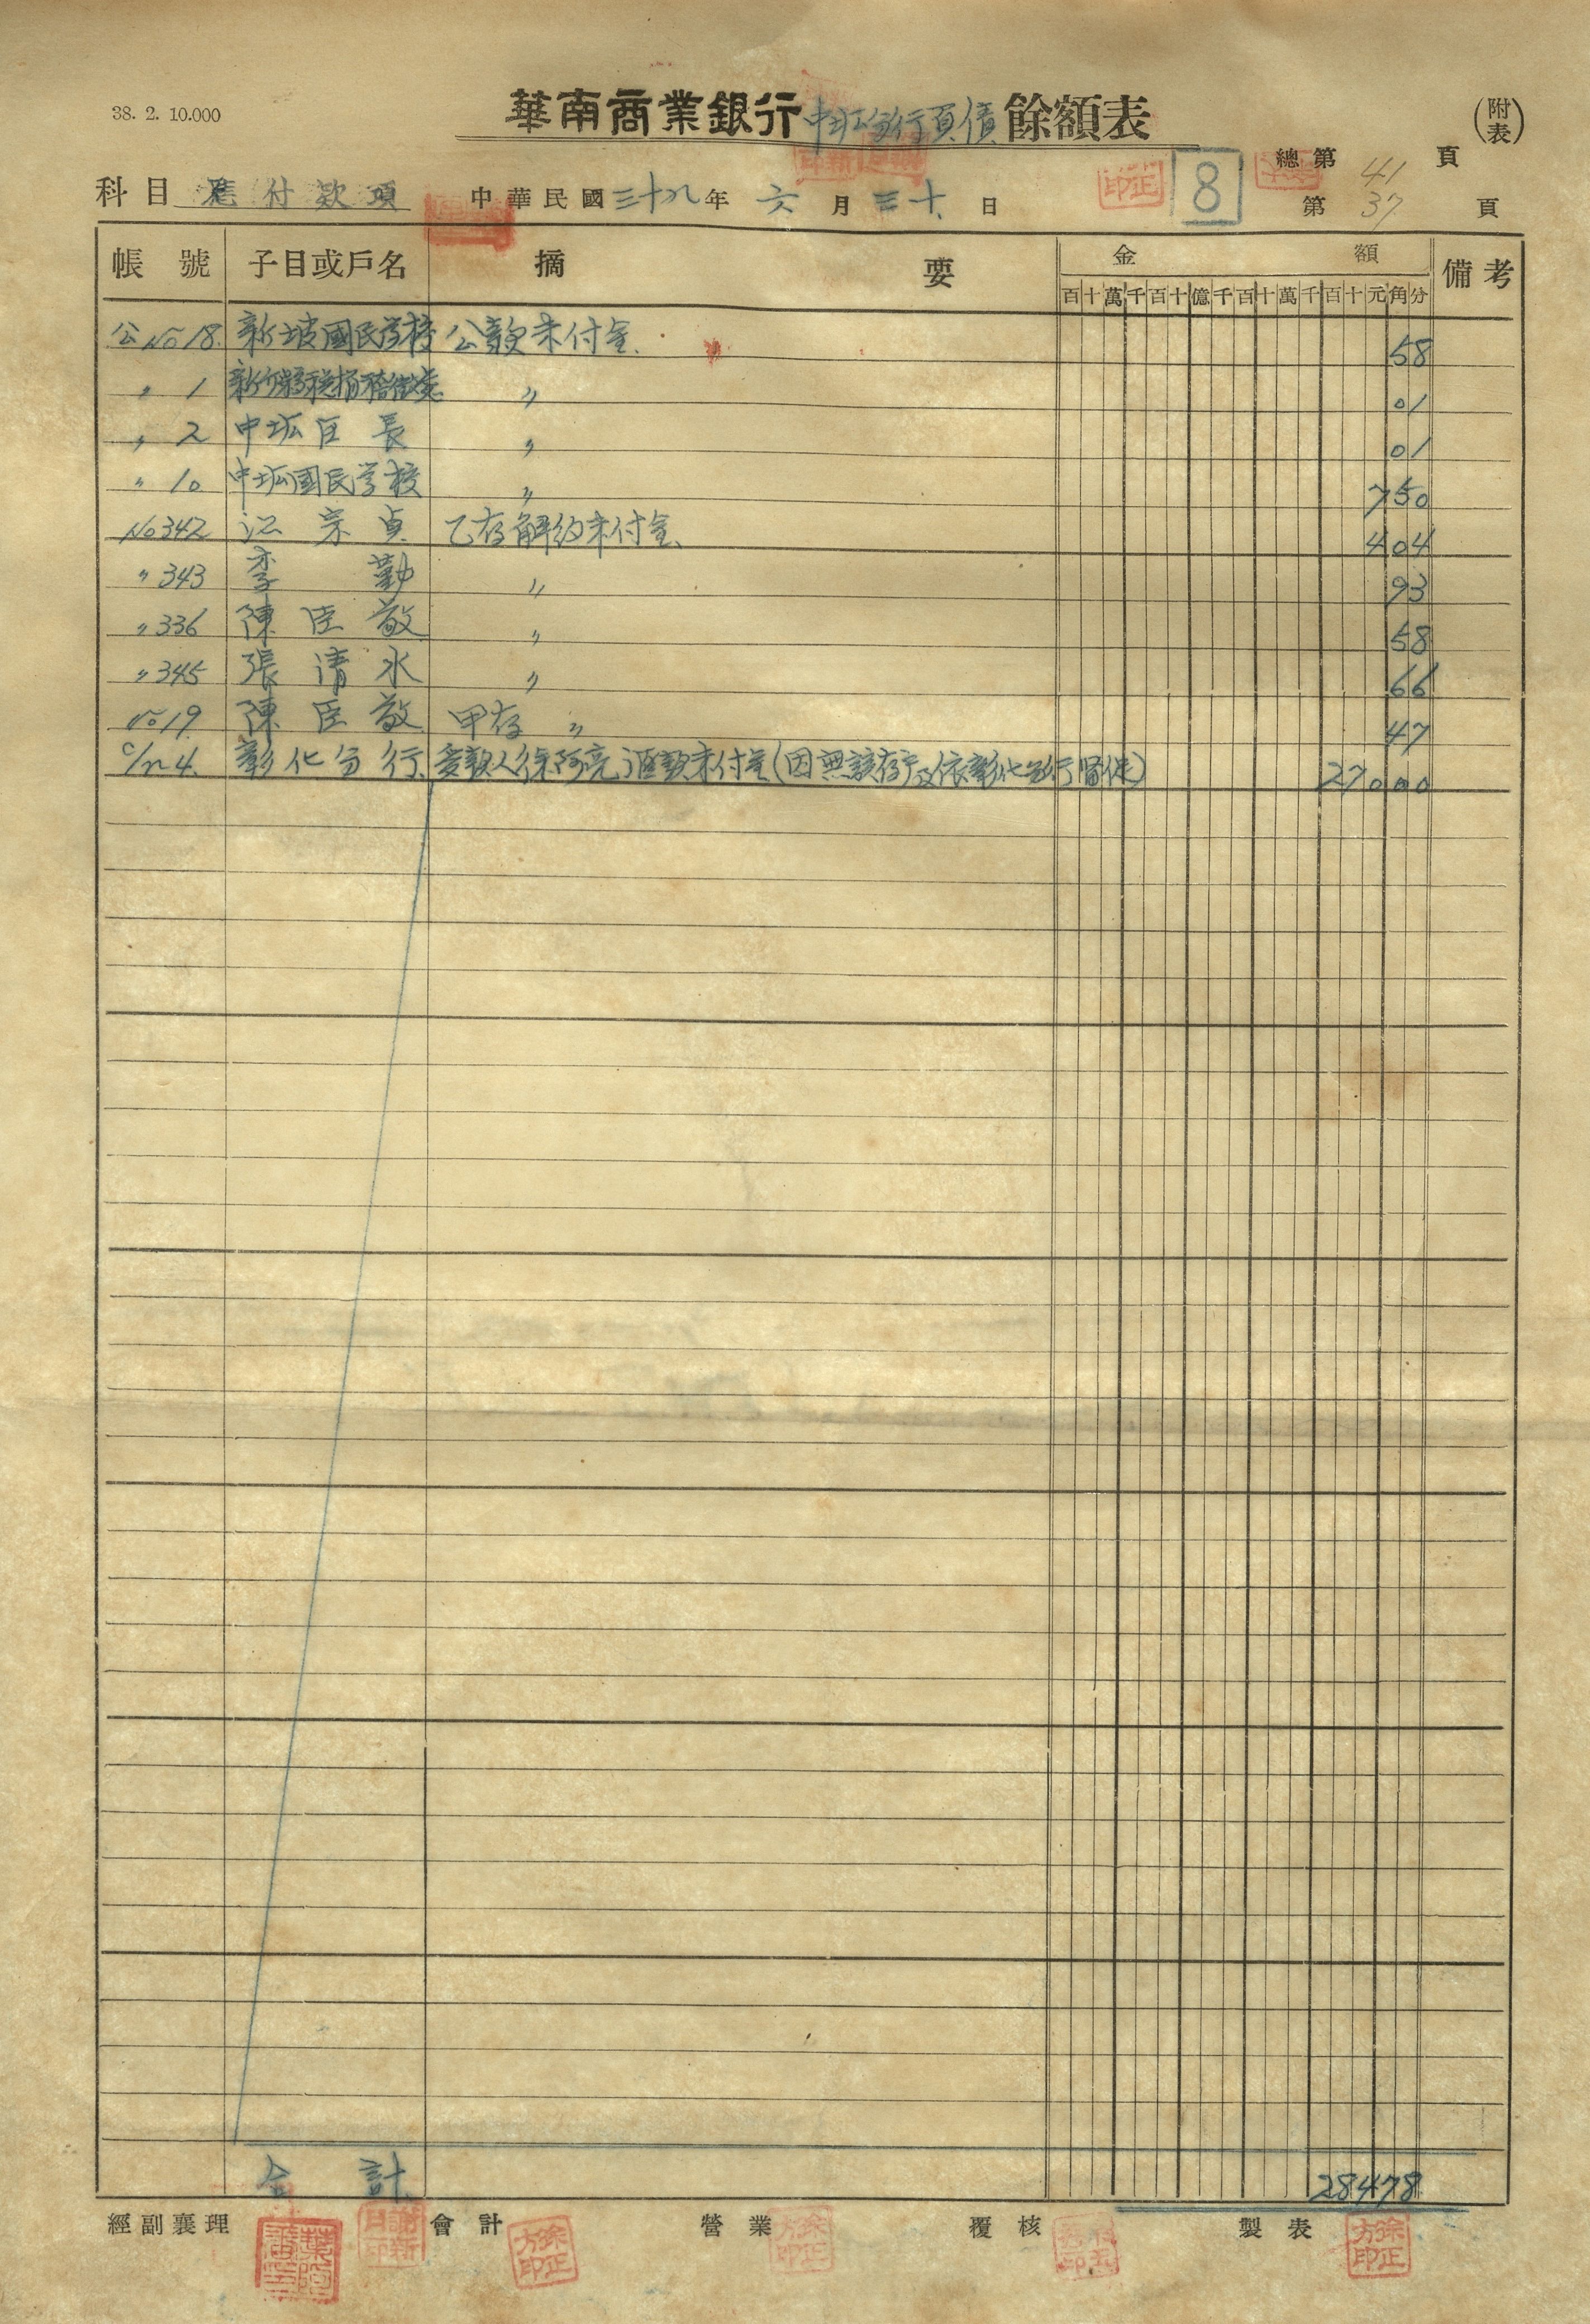 38. 2. 10.000
華南商業銀行中坜分行負債餘額表
(附表)
總第 41 頁
科目 應付款項 中華民國三十九年六月三十日 8 第 37 頁
帳號 子目或戶名 摘要 金額 備考
百十萬千百十億千百十萬千百十元角分
公No18. 新坡國民学校 公款未付金. 58
〃 1 新竹縣稅捐稽徵處 〃 01
〃 2 中坜区長 〃 01
〃 10 中坜國民学校 〃 750
No342 江宗貞 乙存解約未付金、 404
〃343 李勤 〃 93
〃336 陳臣敬 〃 58
〃345 張清水 〃 66
No19. 陳臣敬 甲存 〃 47
c/n 4. 彰化分行. 受款人徐阿亮 滙款未付金(因無該存戶及依彰化分行留保) 27000
合計 28478
經副襄理 會計 營業 覆核 製表
徐正方印